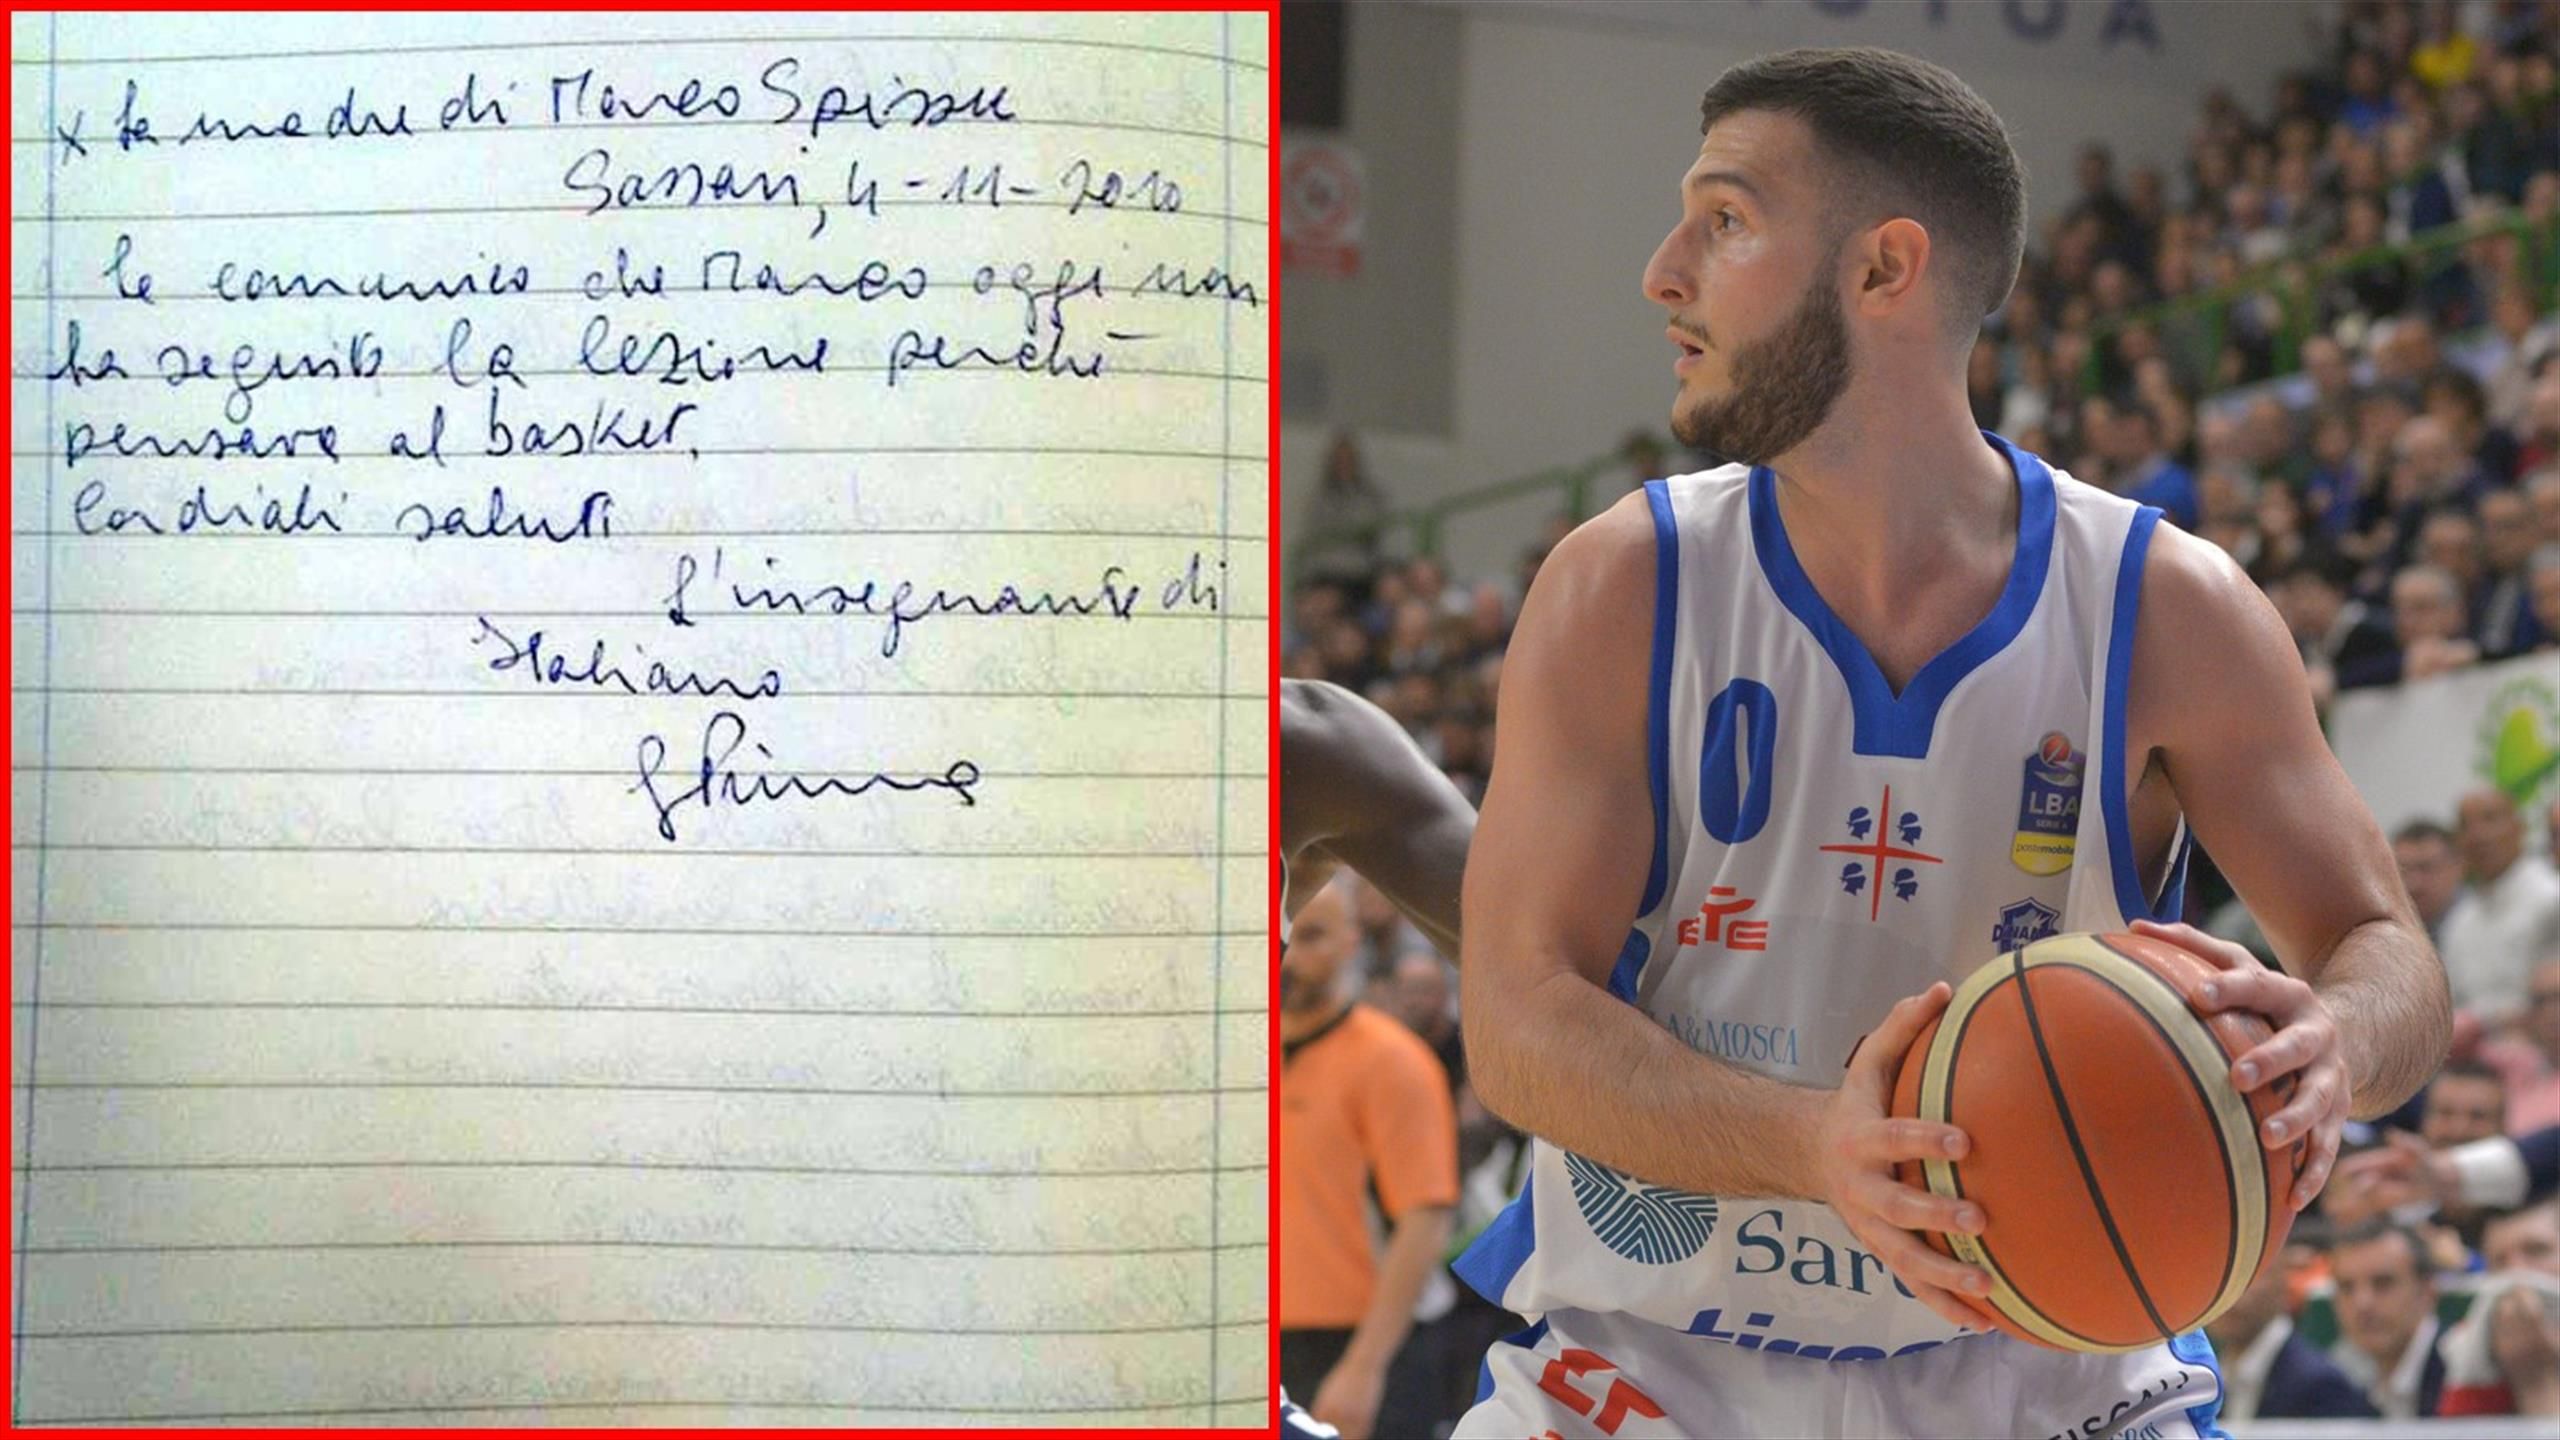 x la madre di Marco Spissu
Sassari, 4-11-2010
le comunico che Marco oggi non
ha seguito la lezione perchè
pensava al basket.
Cordiali saluti
L'insegnante di
Italiano
GPinna
0
LBA
SERIE A
postemobile
EYE
DINAMO
LA&MOSCA
Sar
tirre
TISCALI